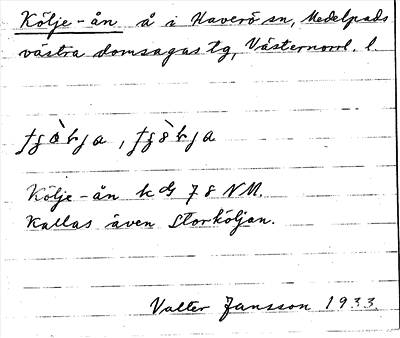 Kölje-ån å i Haverö sn, Medelpads
västra domsagas tg, Västernorrl. l
Kölje-ån 78 NM.
Kallas även Storköljan.
Valter Jansson 1933.